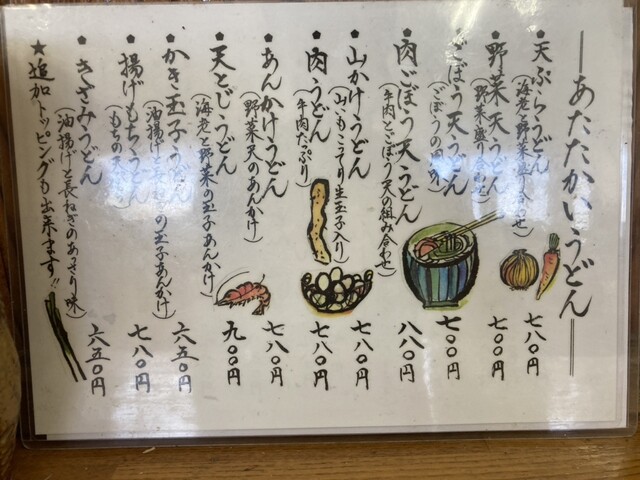 あたたかいうどん
・天ぷらうどん
(海老と野菜盛り合わせ)
七八〇円
・野菜天うどん
(野菜盛り合わせ)
七〇〇円
ごぼう天うどん
七〇〇円
・肉ごぼう天うどん
(牛肉とごぼう天の組み合わせ)
八八〇円
・山かけうどん
(山いもこってり生玉子入り)
七八〇円
・肉うどん
(牛肉たっぷり)
七八〇円
・あんかけうどん
(野菜天のあんかけ)
七八〇円
・天とじうどん
(海老と野菜の玉子あんかけ)
九〇〇円
・かき玉子うどん
(油揚げと長ねぎの玉子あんかけ)
六五〇円
・揚げもちうどん
(もちの天ぷら)
七八〇円
・きざみうどん
(油揚げと長ねぎのあさり味)
六五〇円
★追加トッピングも出来ます!!